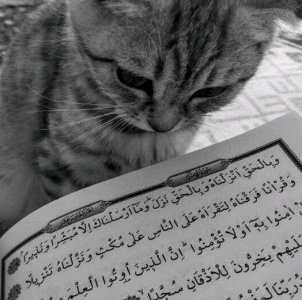 وَبِالْحَقِّ أَنْزَلْنَاهُ وَبِالْحَقِّ نَزَلَ وَمَا أَرْسَلْنَاكَ إِلَّا مُبَشِّرًا وَنَذِيرًا
وَقُرْآنًا فَرَقْنَاهُ لِتَقْرَأَهُ عَلَى النَّاسِ عَلَى مُكْثٍ وَنَزَّلْنَاهُ تَنْزِيلًا
آمِنُوا بِهِ أَوْ لَا تُؤْمِنُوا إِنَّ الَّذِينَ أُوتُوا الْعِلْمَ
عَلَيْهِمْ يَخِرُّونَ لِلْأَذْقَانِ سُجَّدًا
رَبِّنَا